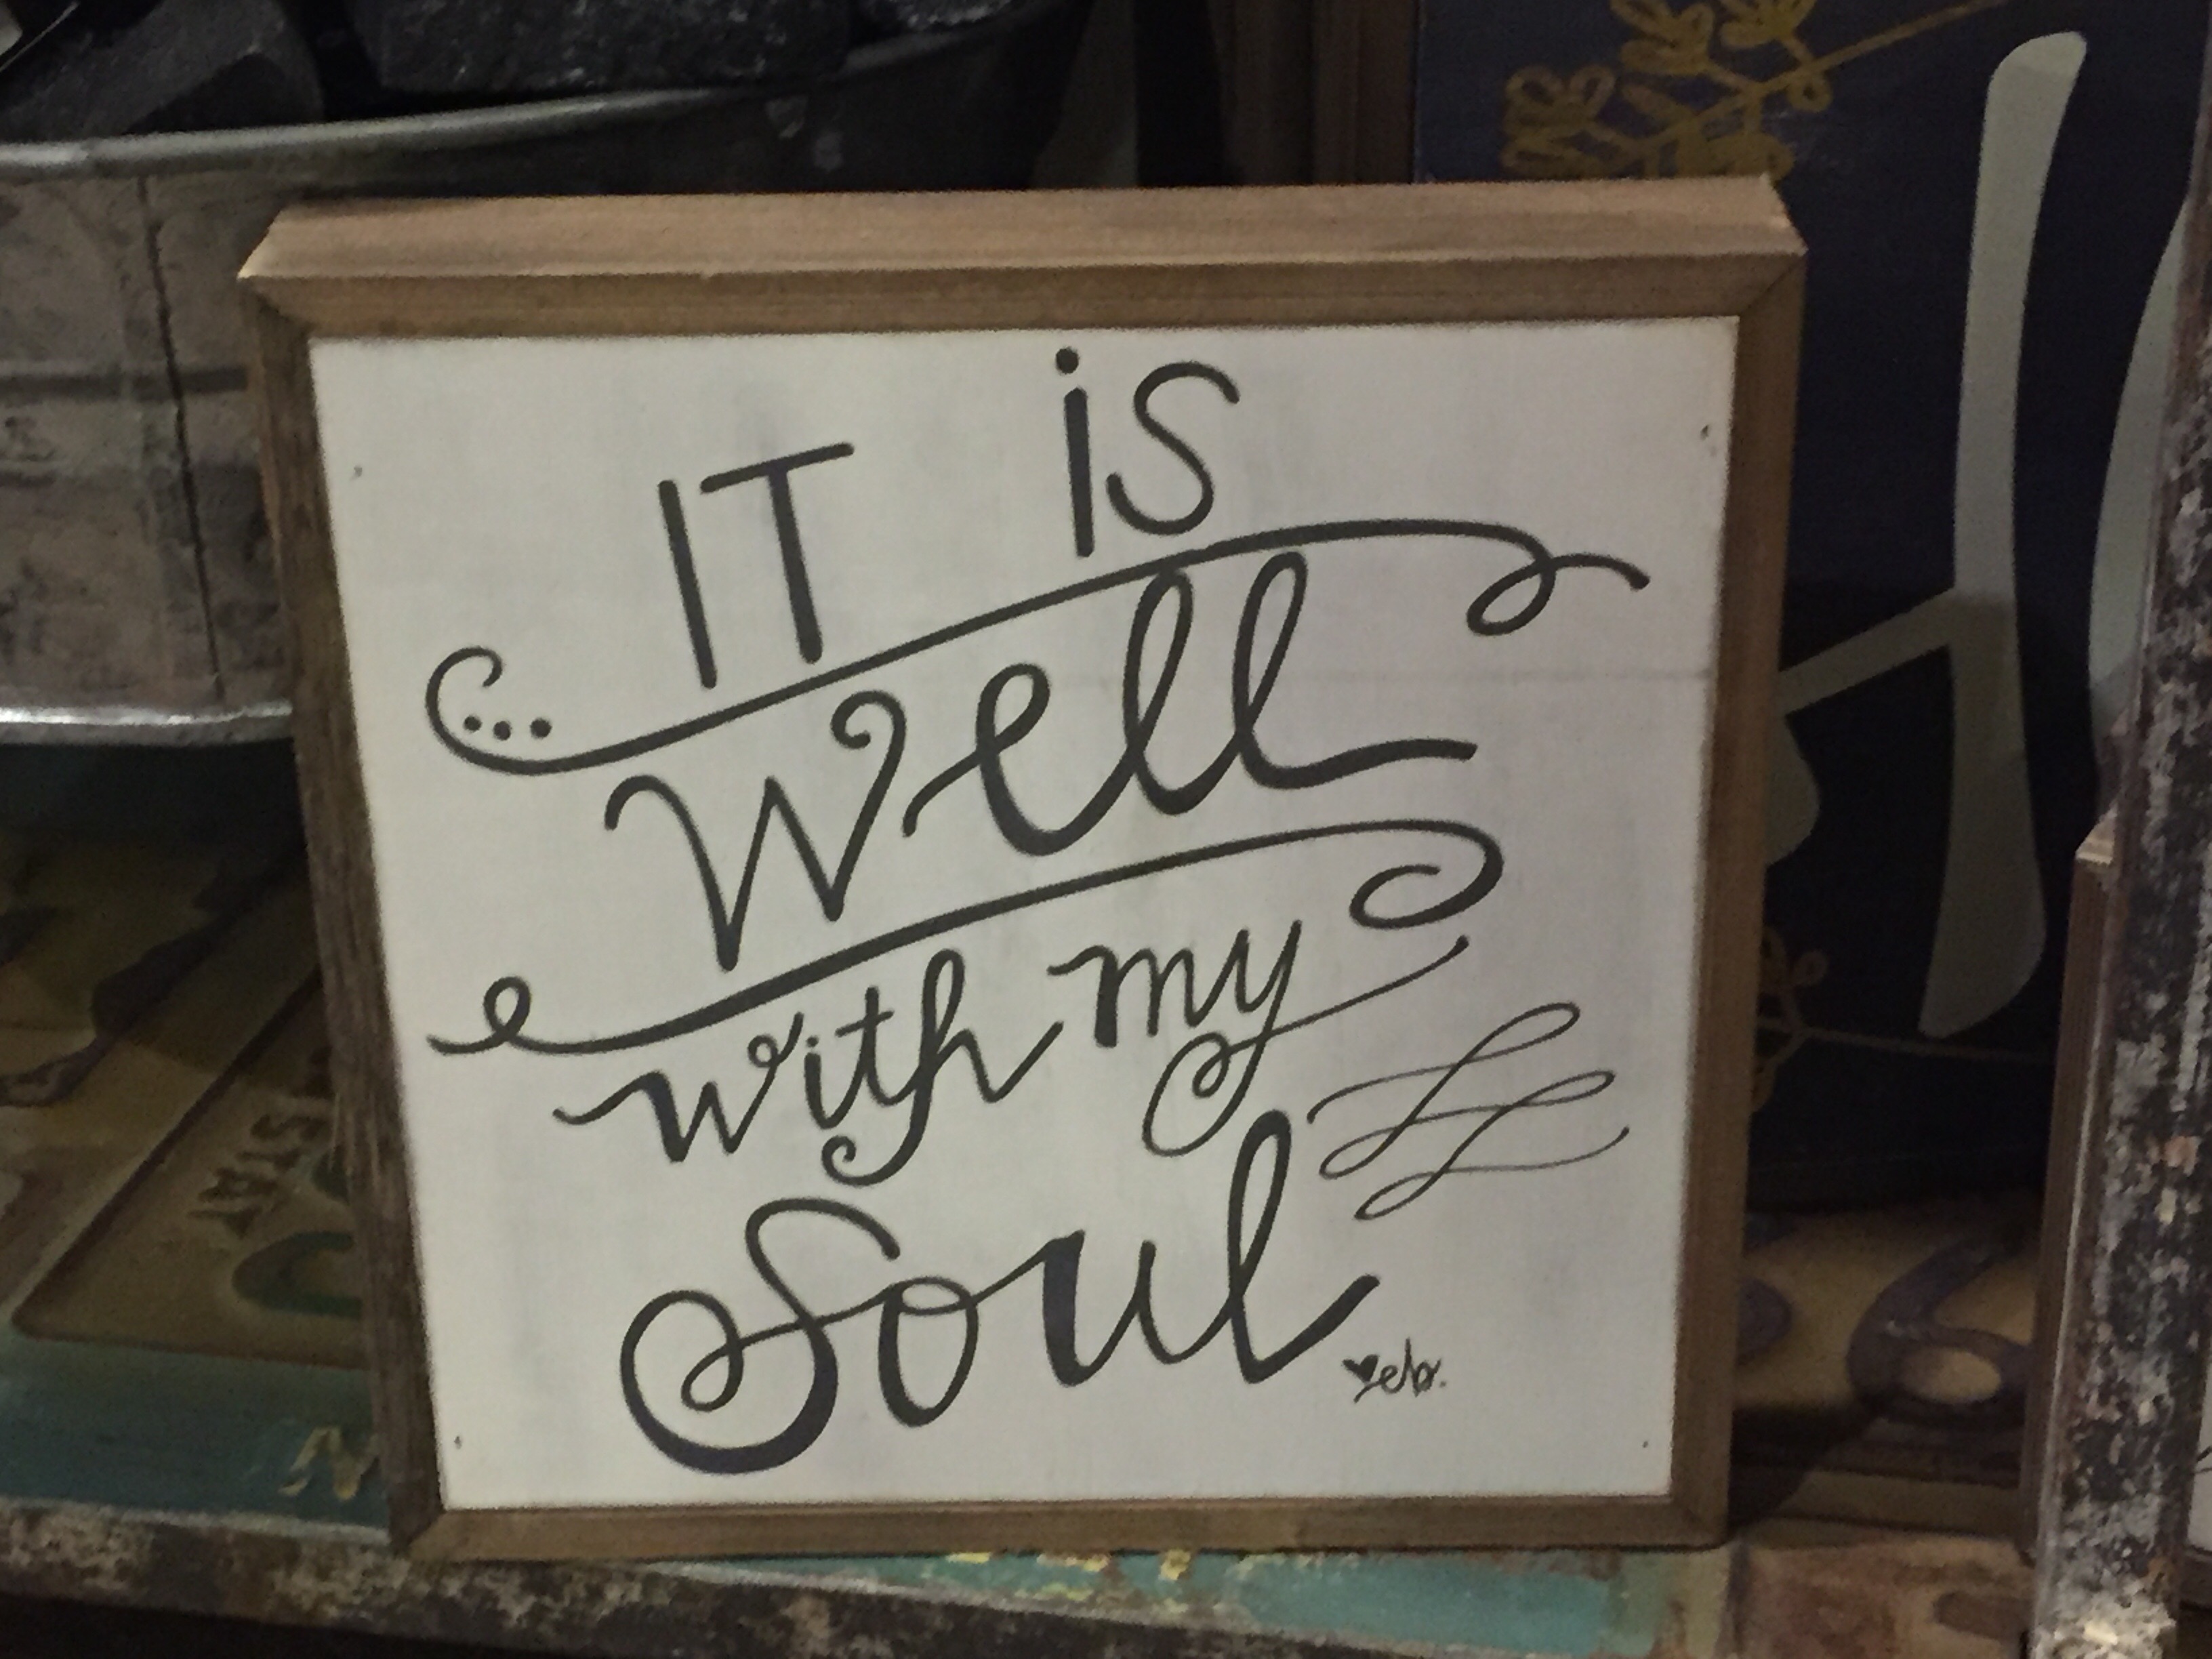 IT is
Well
with my
Soul
eb.